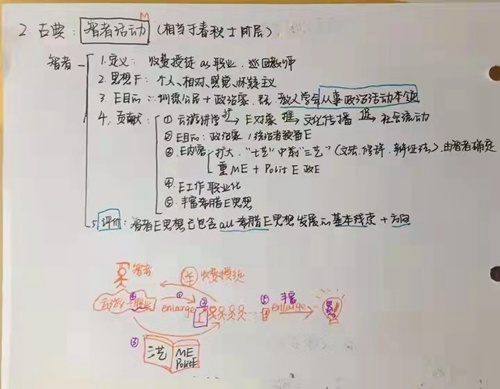 2 古典：智者活动 M（相当于春秋士阶层）
智者
1. 定义：收费授徒 as 职业，巡回教师
2. 思想F：个人、相对、感觉、怀疑主义
3. E目的：训练公民+政治家，教人学会从事政治活动本领
4. 贡献：① 云游讲学 扩 E对象 推 文化传播 促 社会流动
② E目的：政治家/统治者预备E
③ E内容 扩大，“七艺”中前“三艺”（文法、修辞、辩证法），由智者确定
重 ME + Polit E
④ E工作职业化
⑤ 丰富希腊E思想
5. 评价：智者E思想已包含all希腊E思想发展的基本线索+方向
智者 ¥ 收费授徒
云游 职业 ① enlarge ② ⑤ 丰富 enlarge
③ 三艺 ME PolitE